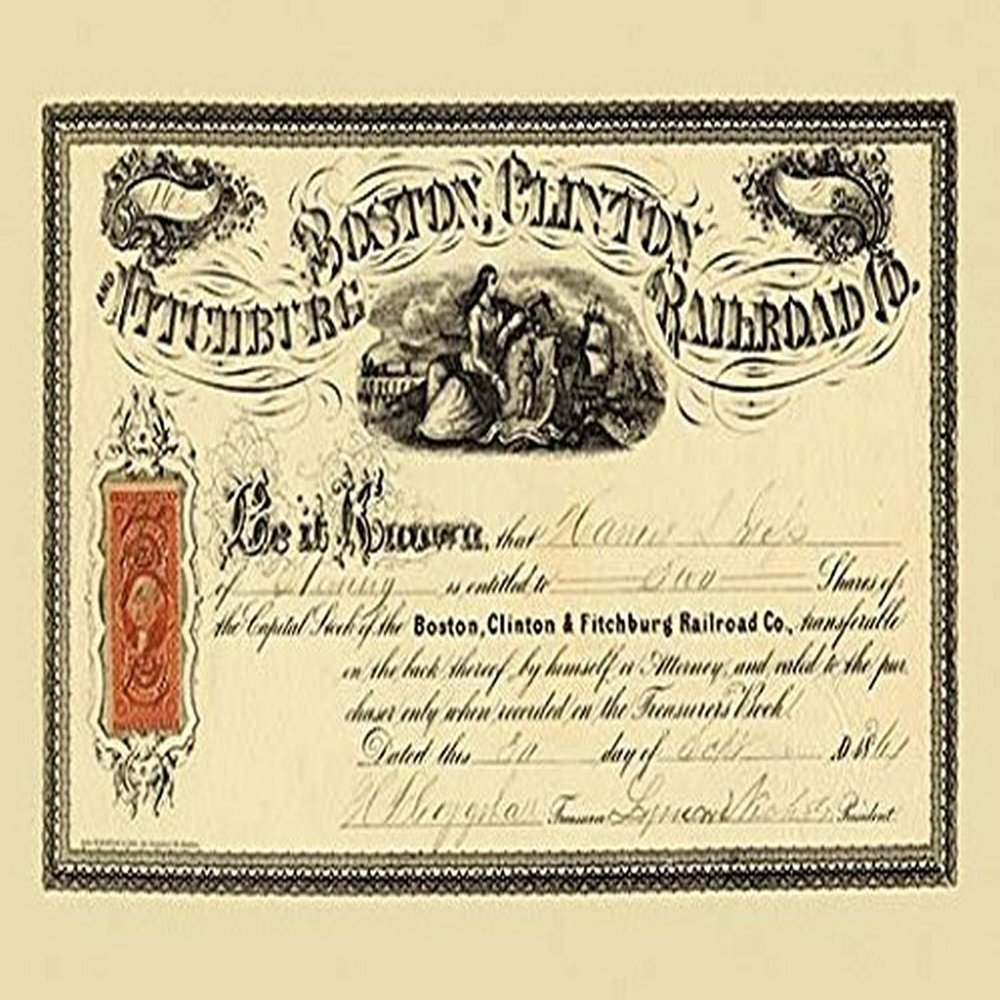 BOSTON, CLINTON
AND FITCHBURG RAILROAD CO.
Be it Known, that
of is entitled to Two Shares of
the Capital Stock of the Boston, Clinton & Fitchburg Railroad Co., transferable
on the back thereof by himself or Attorney, and valid to the pur
chaser only when recorded on the Treasurer's Book
Dated this day of D 18
Treasurer Lyman President